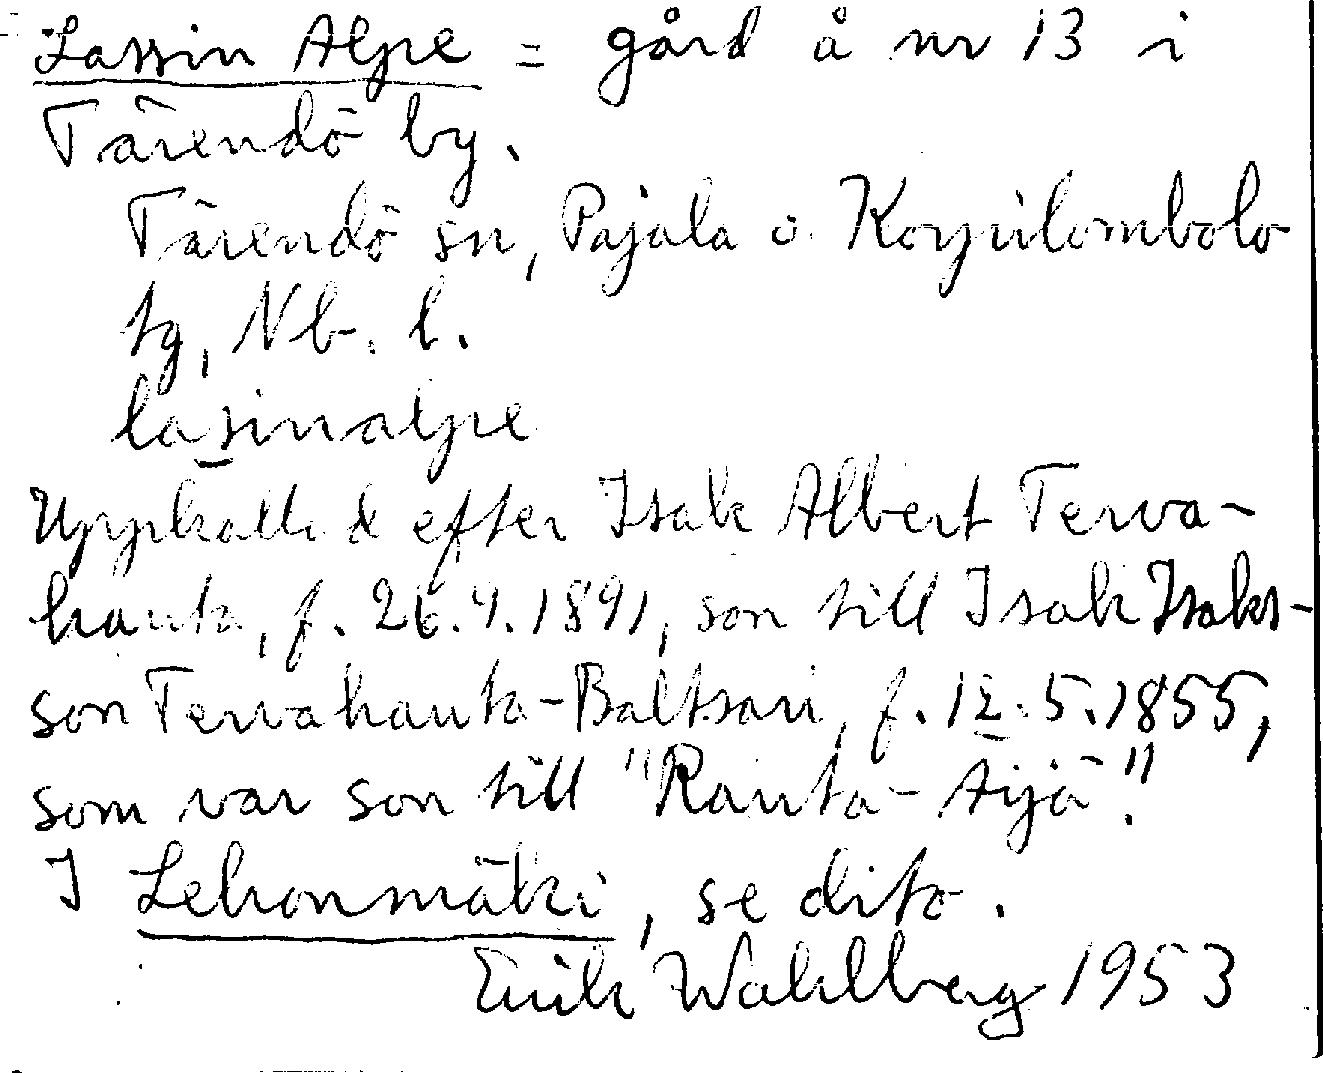 Lassin Alpe = gård å nr 13 i
Tärendö by.
Tärendö sn, Pajala o. Korpilombolo
tg, Nb. l.
lasinalpe
Uppkallad efter Isak Albert Terva-
hauta, f. 26.9.1891, son till Isak Isaks-
son Tervahauta-Baltsari, f. 12.5.1855,
som var son till "Rauta-Äijä".
I Lehonmäki, se dito.
Erik Wahlberg 1953